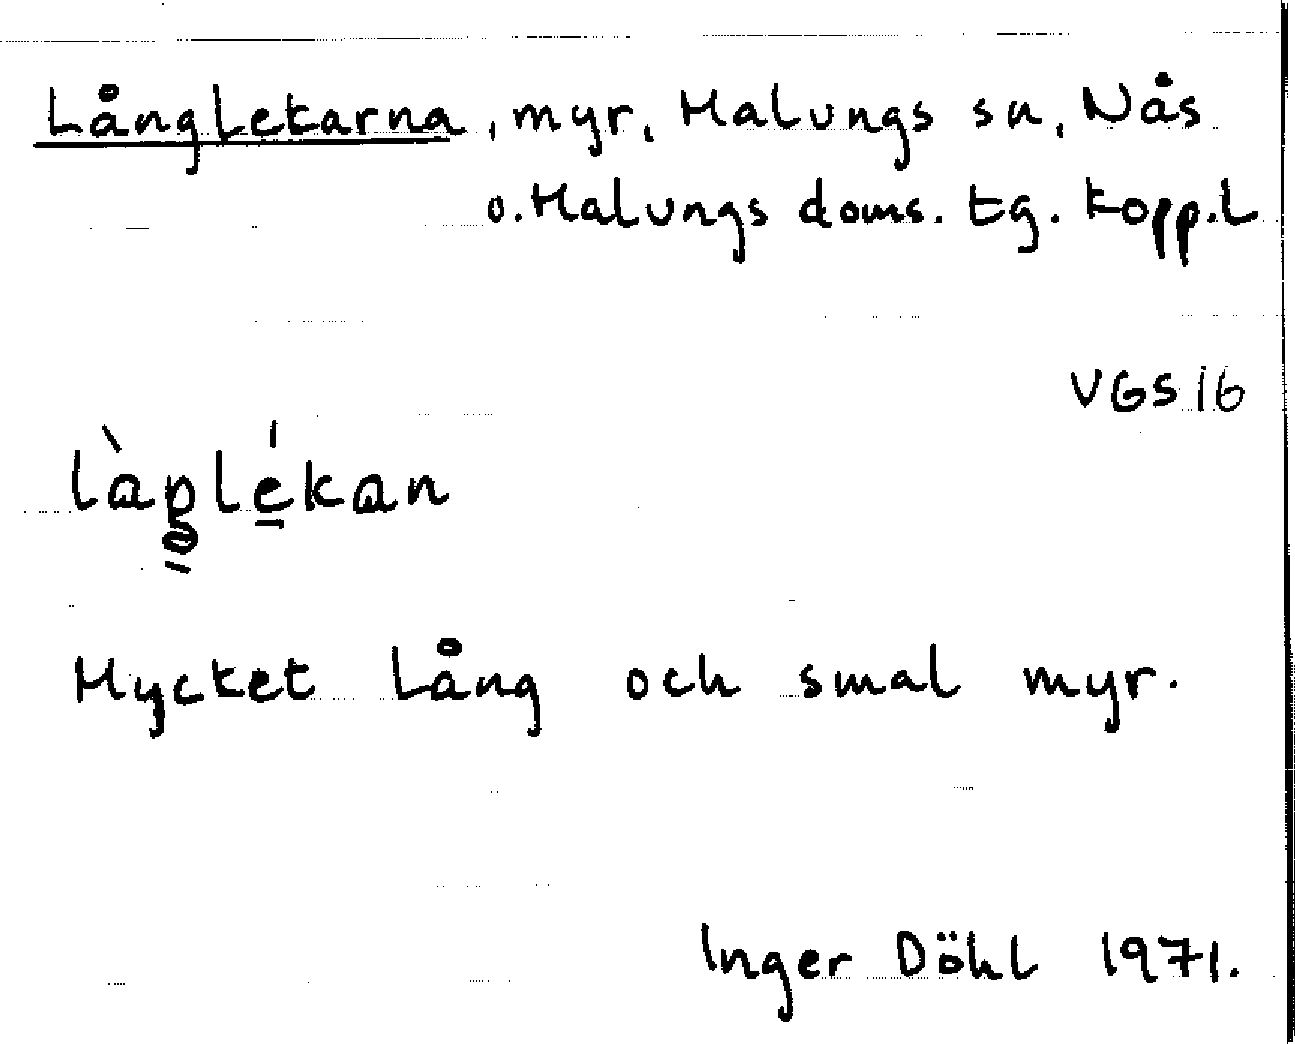 Långlekarna, myr, Malungs sn, Nås
o. Malungs doms. tg. Kopp. L
VGS 16
Mycket lång och smal myr.
Inger Döhl 1971.